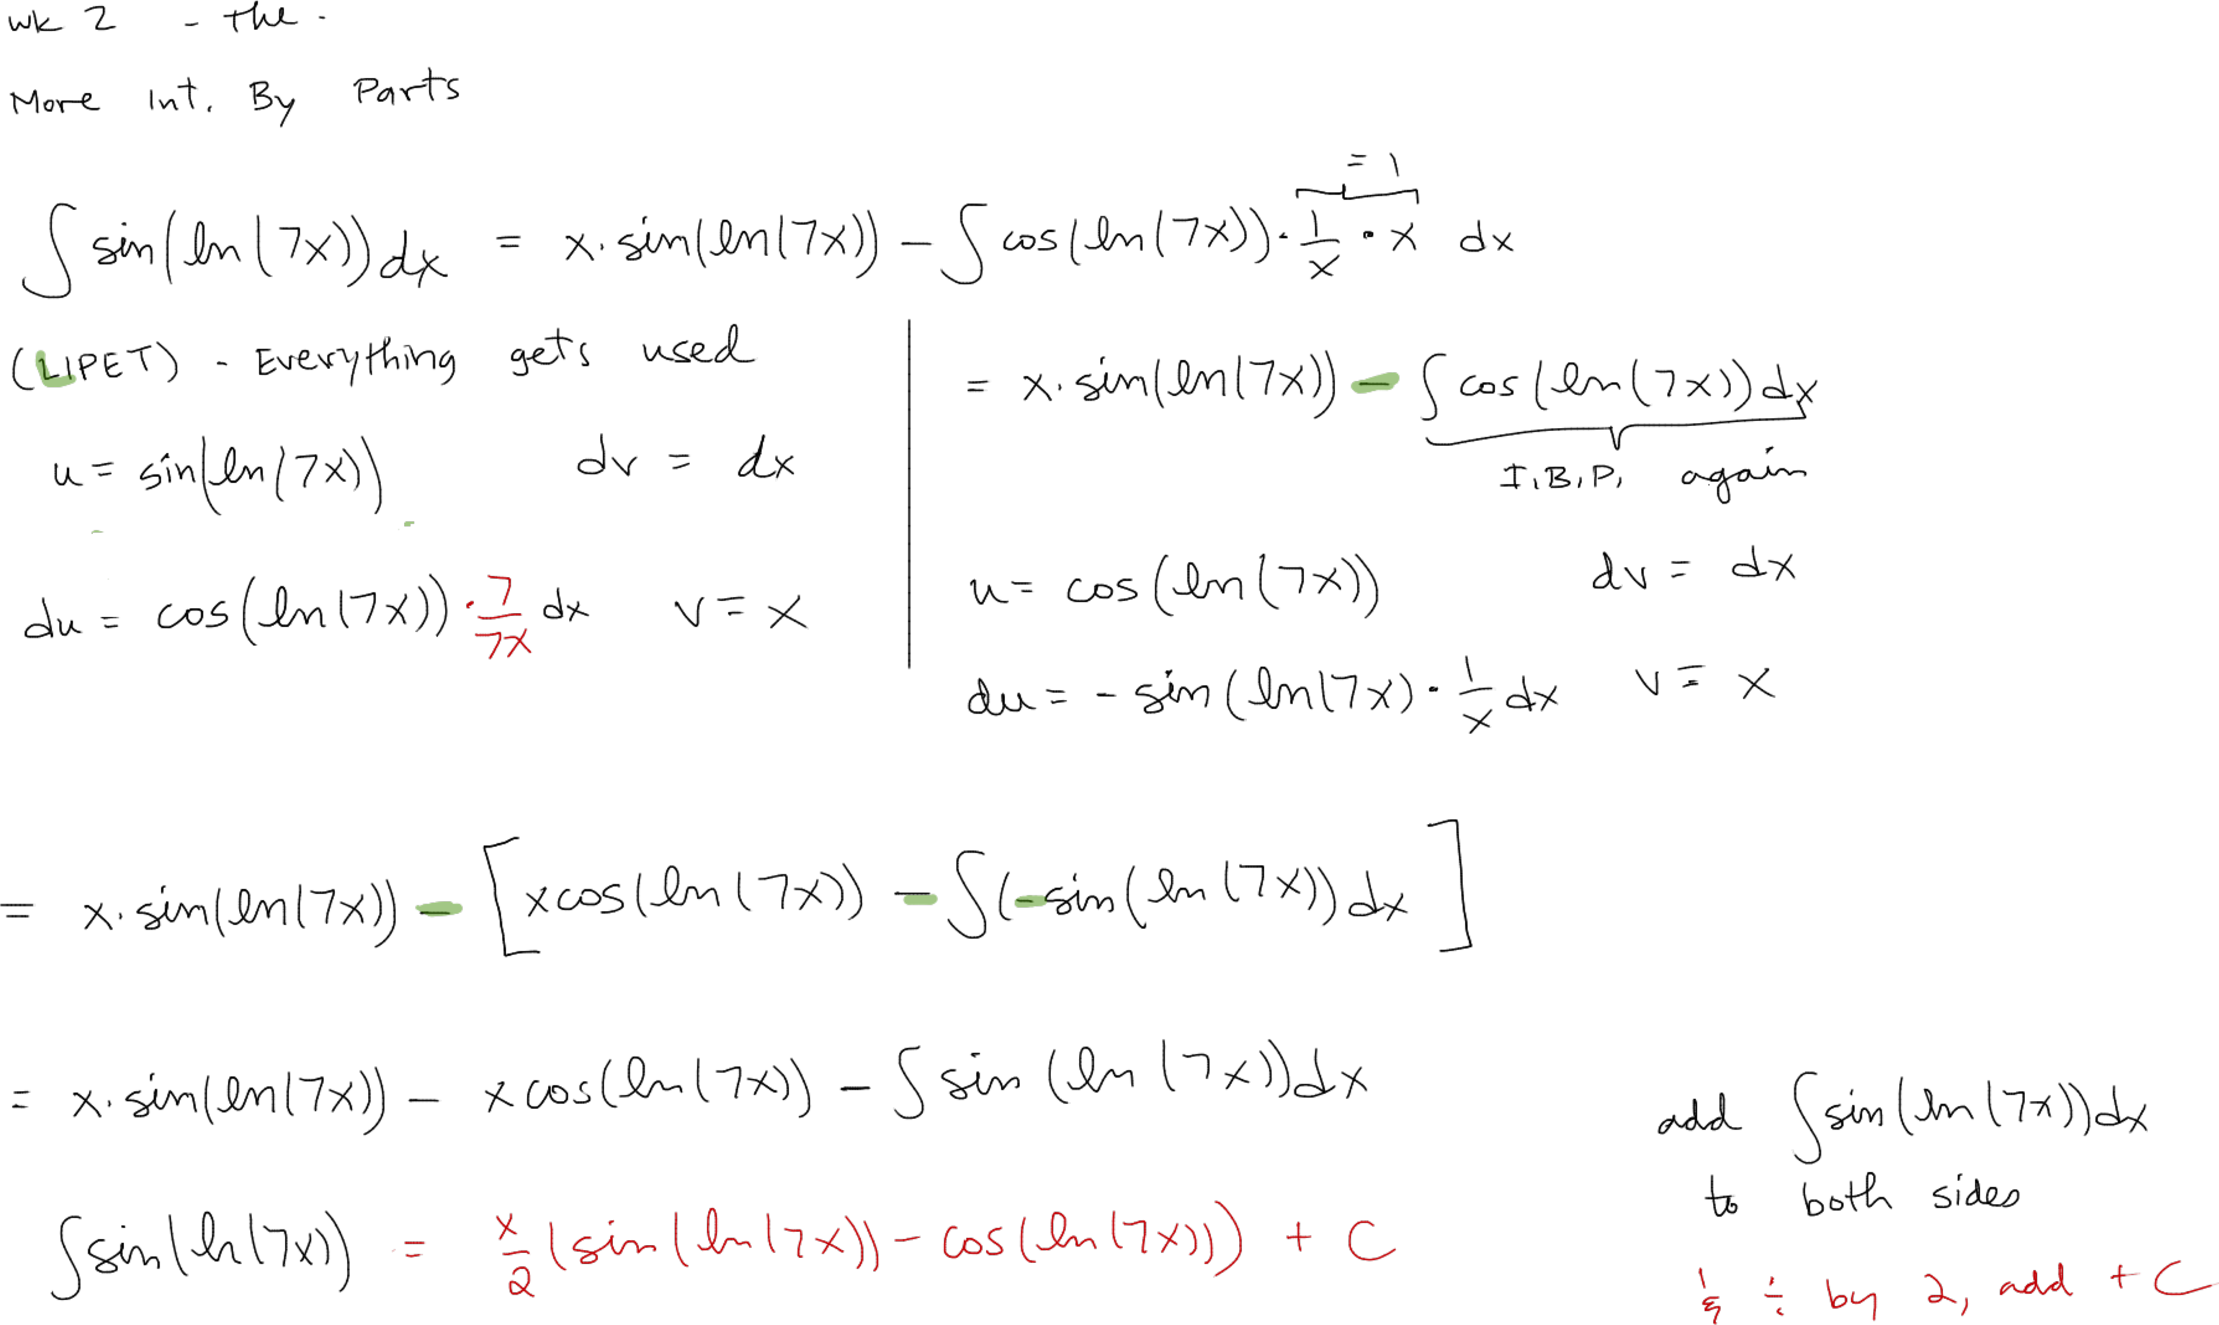 wk 2 - the -
More Int. By Parts
= 1
∫ sin(ln(7x)) dx = x · sin(ln(7x)) − ∫ cos(ln(7x)) · 1/x · x dx
(LIPET) - Everything gets used
u = sin(ln(7x)) dv = dx
du = cos(ln(7x)) · 7/7x dx v = x
= x · sin(ln(7x)) − ∫ cos(ln(7x)) dx
I.B.P. again
u = cos(ln(7x)) dv = dx
du = - sin(ln(7x) · 1/x dx v = x
= x · sin(ln(7x)) − [x cos(ln(7x)) − ∫(-sin(ln(7x)) dx]
= x · sin(ln(7x)) − x cos(ln(7x)) − ∫ sin(ln(7x)) dx
add ∫ sin(ln(7x)) dx
to both sides
∫ sin(ln(7x)) = x/2 (sin(ln(7x)) − cos(ln(7x))) + C
& ÷ by 2, add + C